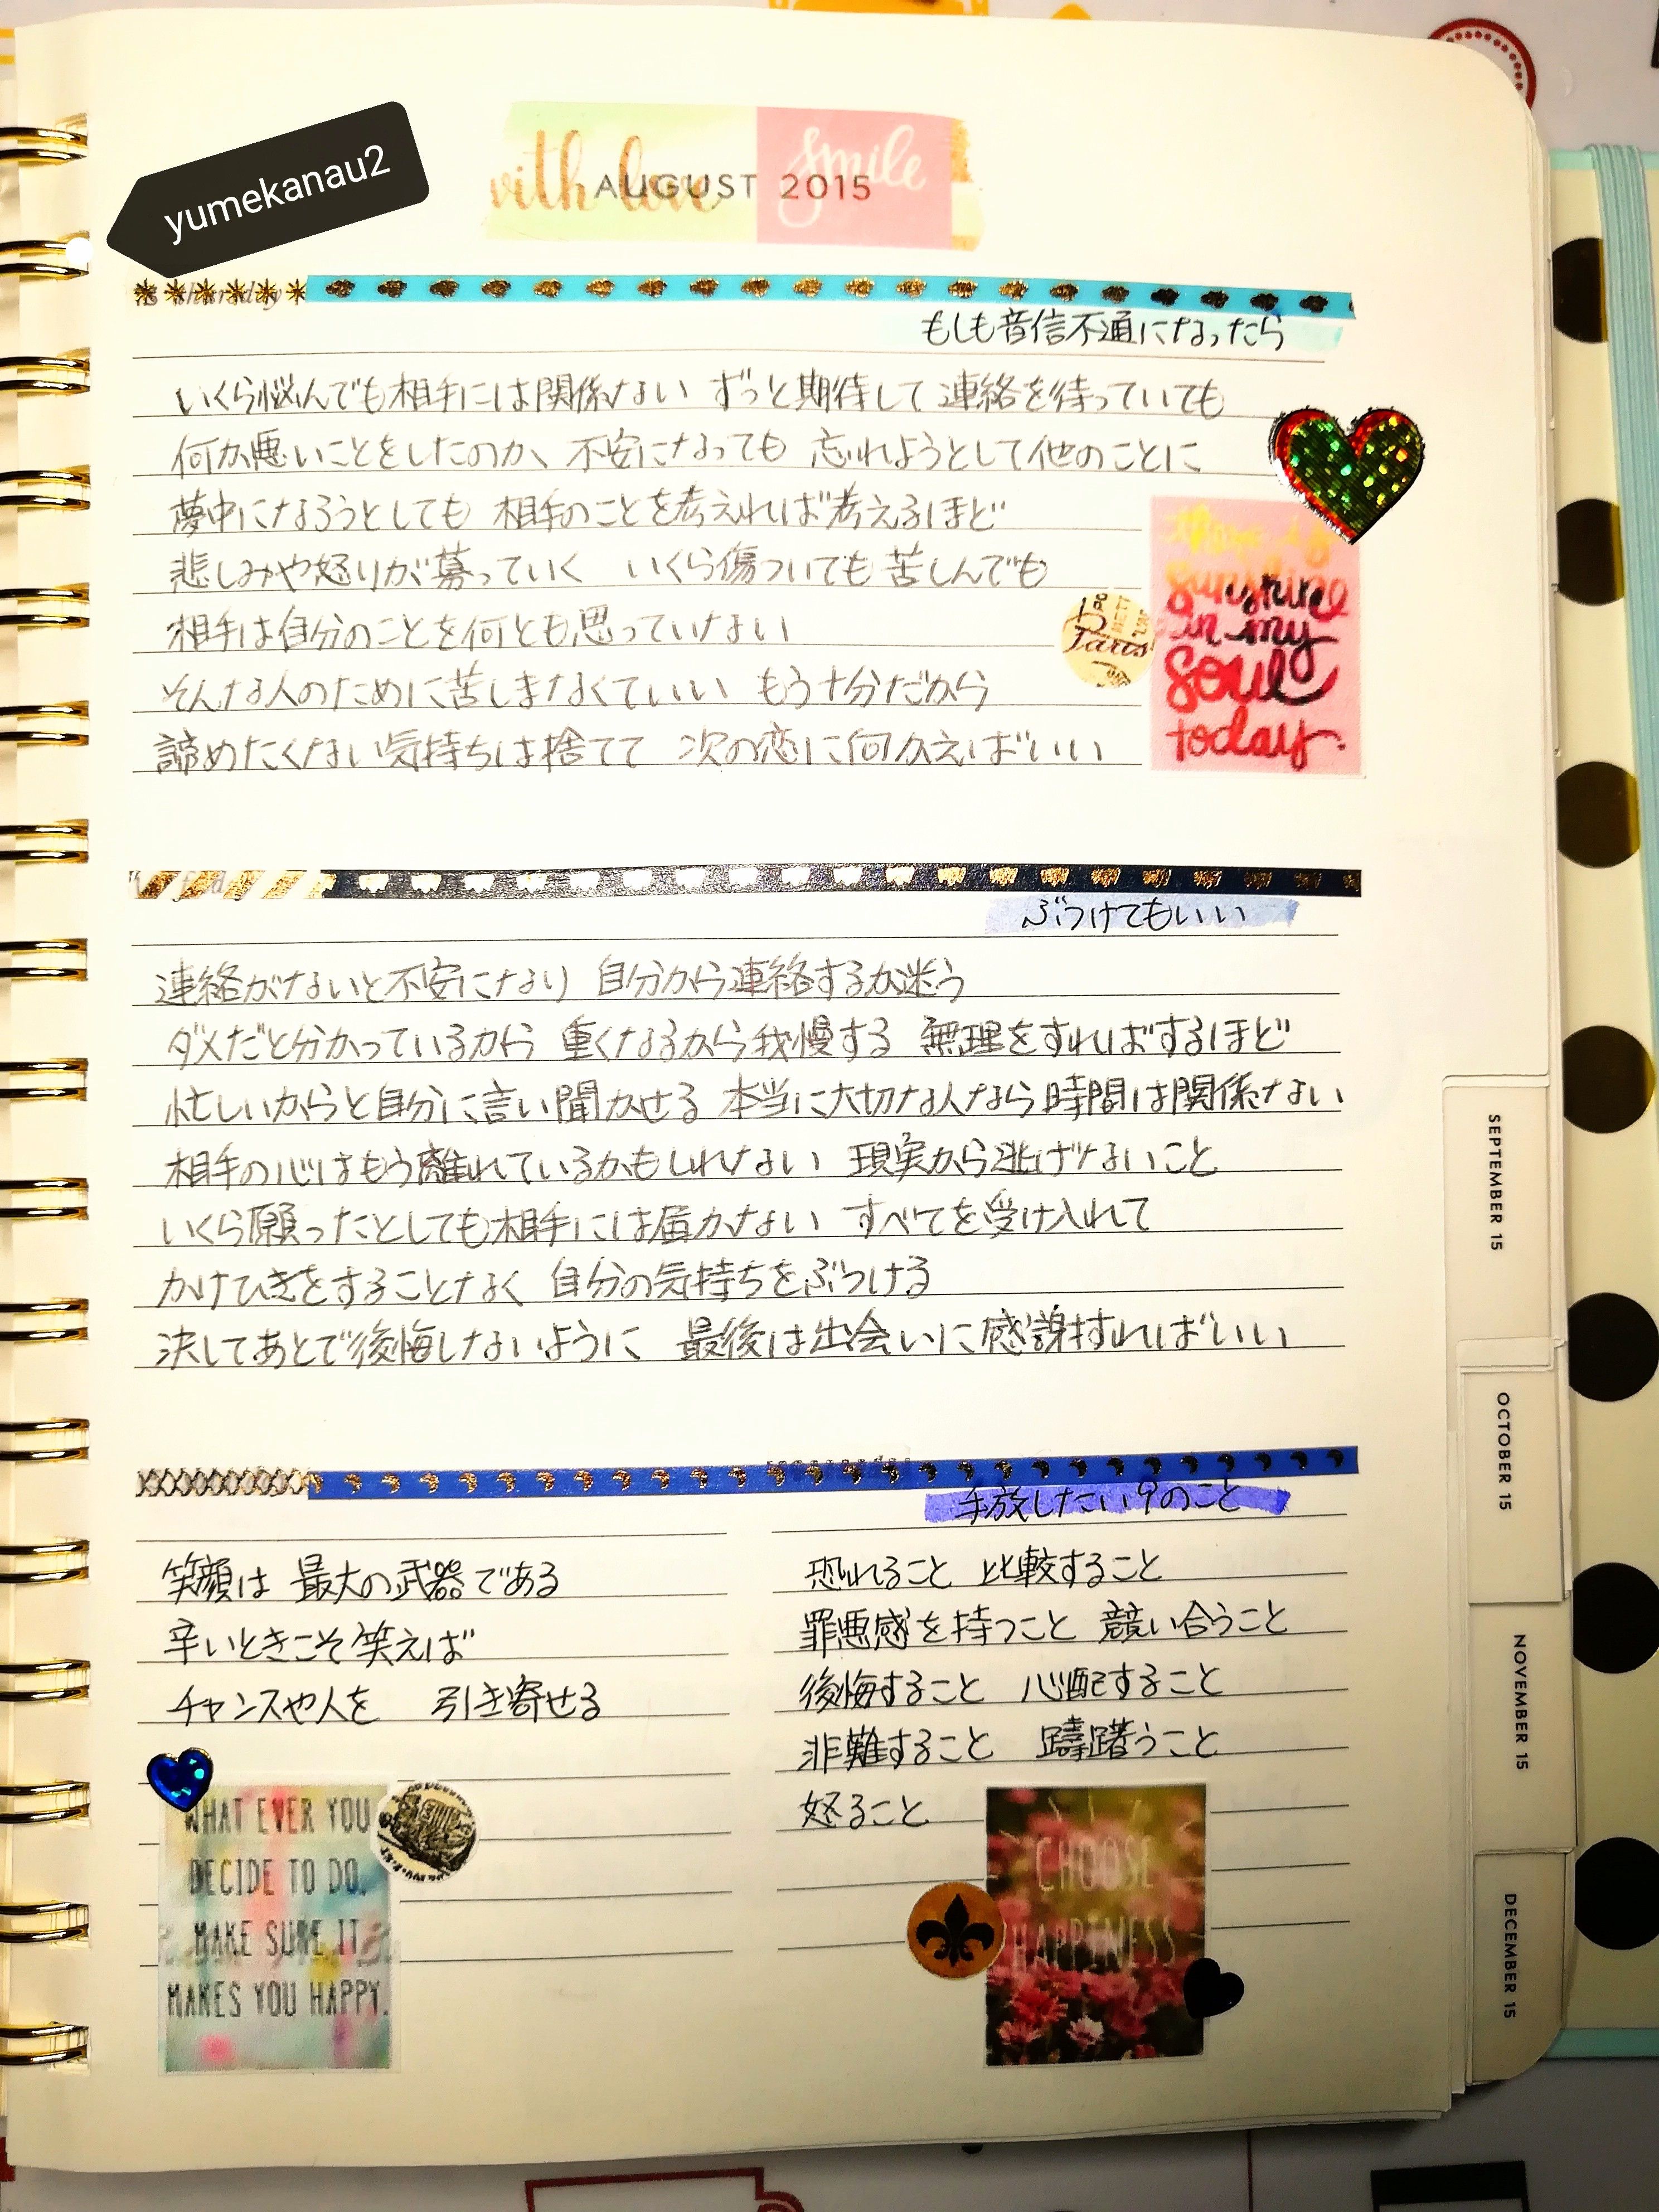 yumekanau2
with love
smile
AUGUST 2015
thursday
もしも音信不通になったら
いくら悩んでも相手には関係ない ずっと期待して連絡を待っていても
何か悪いことをしたのか、不安になっても 忘れようとして他のことに
夢中になろうとしても 相手のことを考えれば考えるほど
悲しみや怒りが募っていく いくら傷ついても苦しんでも
相手は自分のことを何とも思っていない
そんな人のために苦しまなくていい もう十分だから
諦めたくない気持ちは捨てて 次の恋に向かえばいい
sunshine
in my
soul
today.
Paris
ぶつけてもいい
連絡がないと不安になり 自分から連絡するか迷う
ダメだと分かっているから 重くなるから我慢する 無理をすればするほど
忙しいからと自分に言い聞かせる 本当に大切な人なら時間は関係ない
相手の心はもう離れているかもしれない 現実から逃げないこと
いくら願ったとしても相手には届かない すべてを受け入れて
かけひきをすることなく 自分の気持ちをぶつける
決してあとで後悔しないように 最後は出会いに感謝すればいい
手放したい9のこと
笑顔は 最大の武器である
辛いときこそ笑えば
チャンスや人を 引き寄せる
恐れること 比較すること
罪悪感を持つこと 競い合うこと
後悔すること 心配すること
非難すること 躊躇うこと
怒ること
WHAT EVER YOU
DECIDE TO DO,
MAKE SURE IT
MAKES YOU HAPPY.
CHOOSE
HAPPINESS
SEPTEMBER 15
OCTOBER 15
NOVEMBER 15
DECEMBER 15